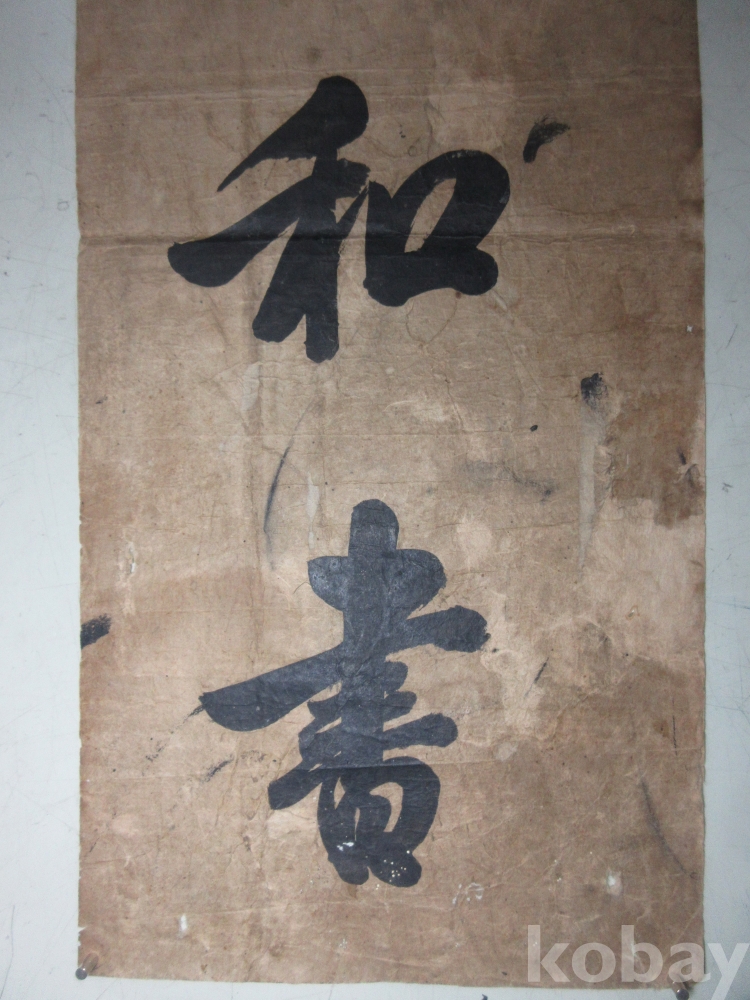 和
書
kobay